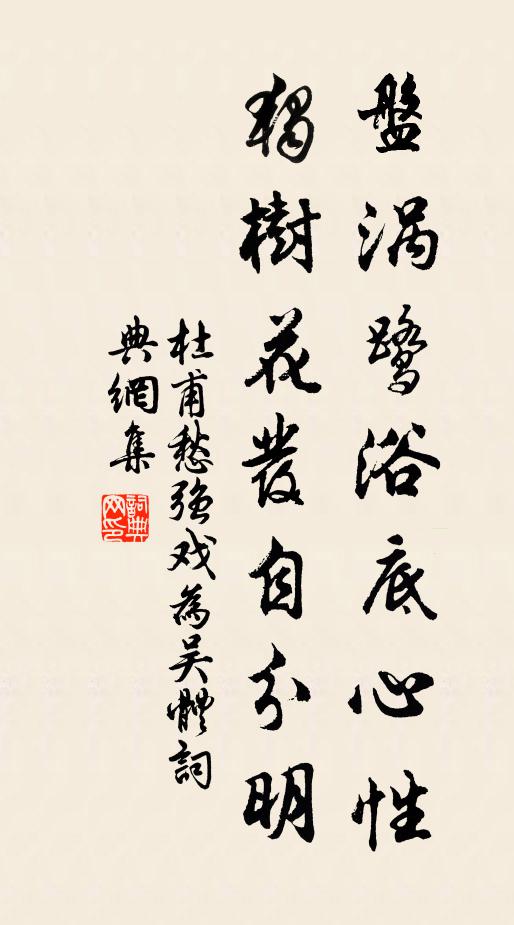 盤渦鷺浴底心性
獨樹花發自分明
杜甫愁强戏為吴體詞
典網集
詞典网印